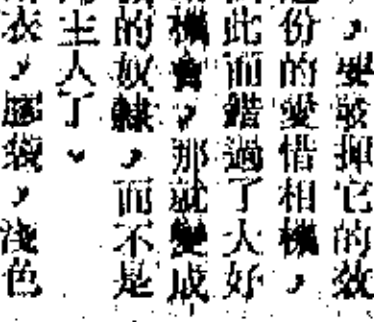 ，要發揮它的效
份的愛惜相機，
此而錯過了大好
機會，那就變成
的奴隸，而不是
主人了。
衣，膠袋，淺色